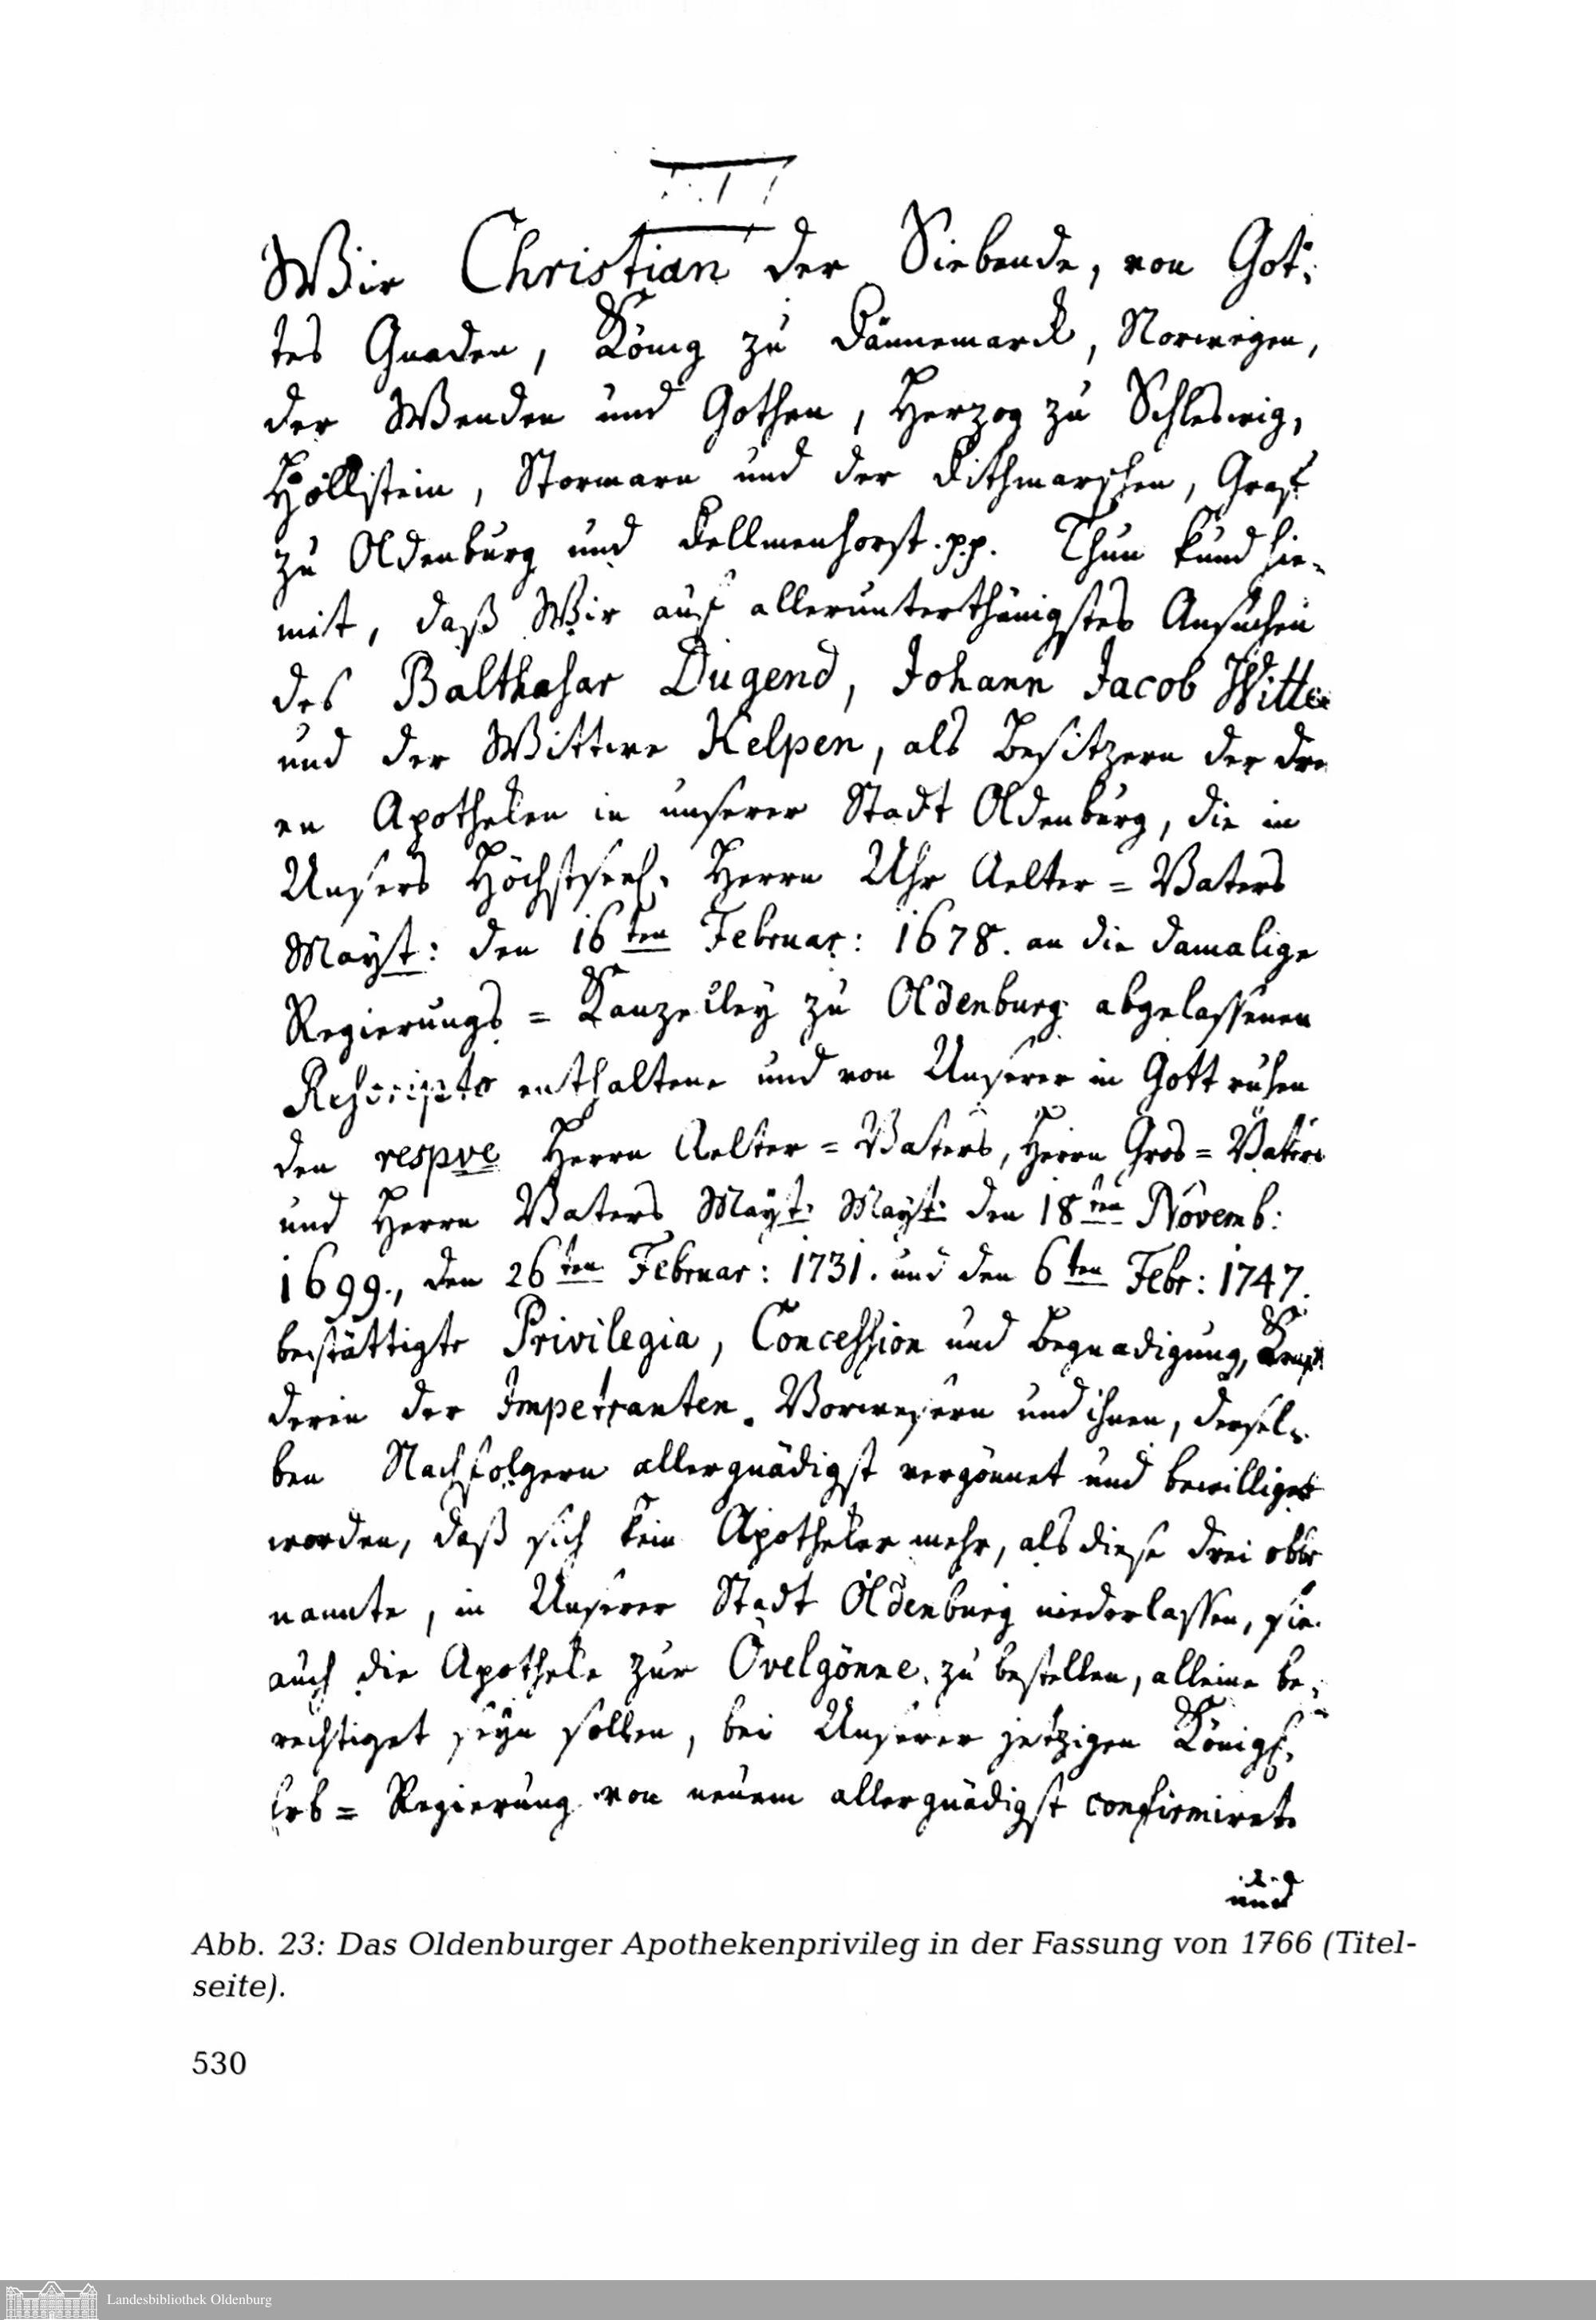 III
Wir Christian der Siebende, von Got=
tes Gnaden, König zu Dännemarck, Norwegen,
der Wenden und Gothen, Herzog zu Schleswig,
Hollstein, Stormarn und der Dithmarschen, Graf
zu Oldenburg und Dellmenhorst. p.p. Thun kund hie=
mit, daß Wir auf allerunterthänigstes Ansuchen
des Balthasar Dugend, Johann Jacob Witte
und der Wittwe Kelpen, als Besitzern der dre
en Apotheken in unserer Stadt Oldenburg, die in
Unsers Höchstseel. Herrn Uhr Aelter = Vaters
Mayst: den 16ten Februar: 1678. an die damalige
Regierungs = Kanzelley zu Oldenburg abgelassenen
Rescripto enthaltene und von Unserer in Gott ruhen
den respve Herrn Aelter = Vaters, Herrn Gros = Vaters
und Herrn Vaters Mayst: Mayst: den 18ten Novemb:
1699., den 26ten Februar: 1731. und den 6ten Febr: 1747.
bestättigte Privilegia, Concession und Begnadigung, Kraft
deren der Impetranten Vorwesern und ihnen, dersel=
ben Nachfolgern allergnädigst vergönnet und bewilliget
worden, daß sich kein Apotheker mehr, als diese drei obbe
nannte, in Unserer Stadt Oldenburg niederlassen, sie
auch die Apotheke zur Övelgönne, zu bestellen, alleine be=
rechtiget seyn sollen, bei Unserer jetzigen Königl.
Erb = Regierung von neuem allergnädigst confirmiret
und
Abb. 23: Das Oldenburger Apothekenprivileg in der Fassung von 1766 (Titel-
seite).
530
Landesbibliothek Oldenburg